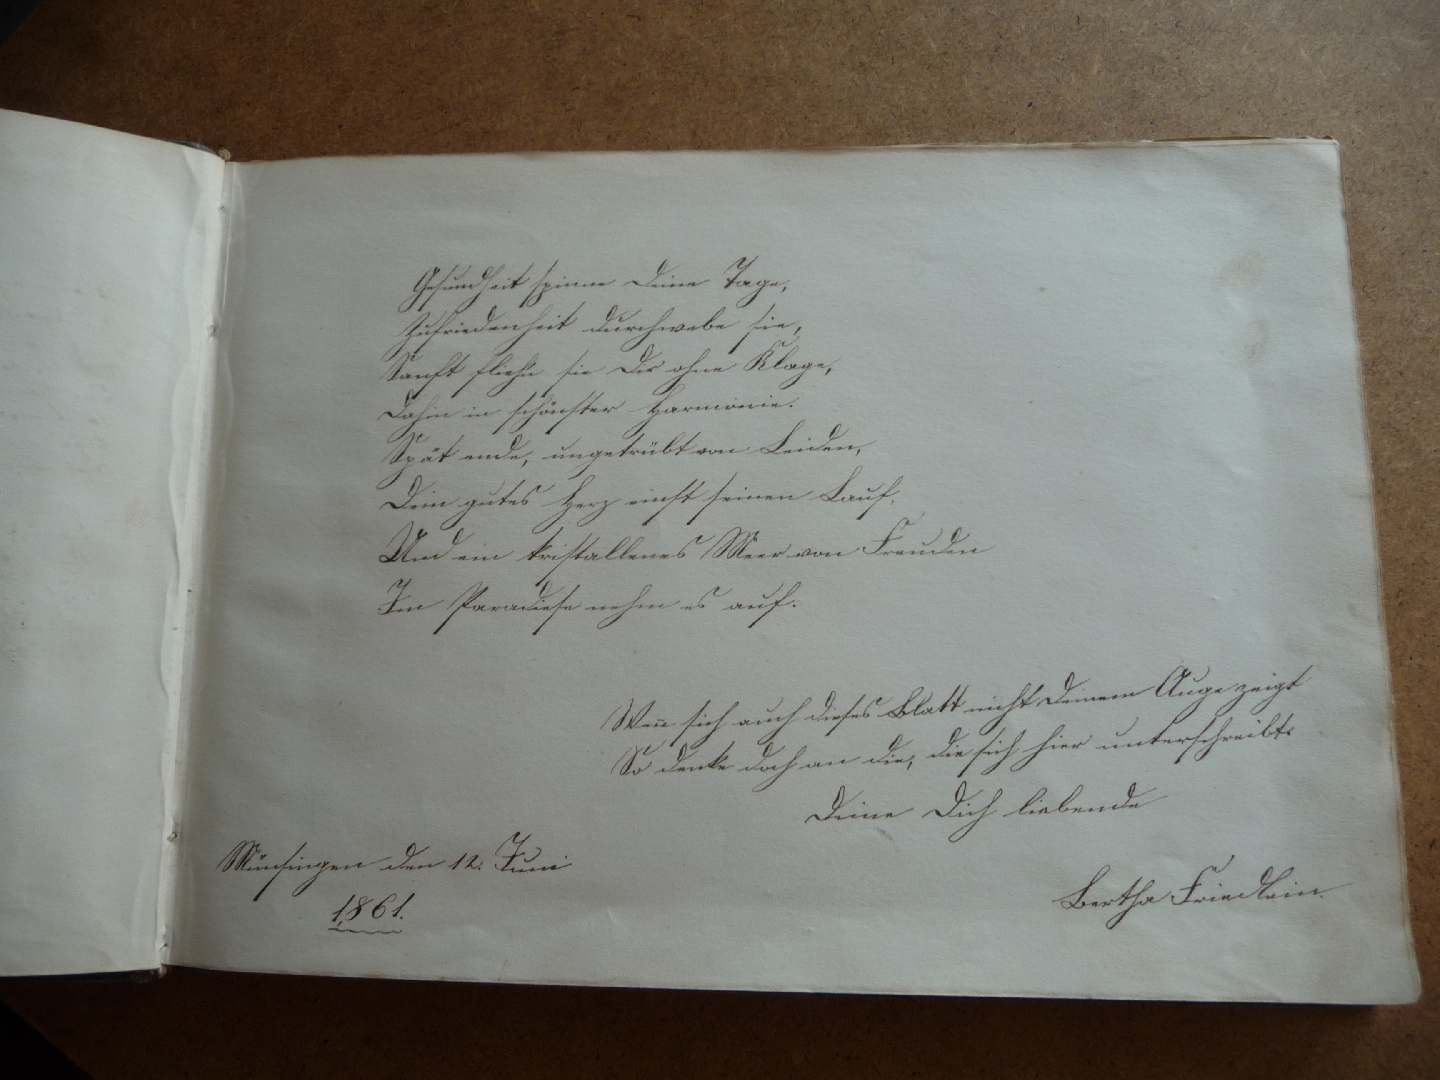 Gesundheit spinne Deine Tage,
Zufriedenheit durchwebe sie,
Sanft fliehn sie Dir ohne Klage,
Dahin in schönster Harmonie.
Spät ende, ungetrübt von Leiden,
Dein gutes Herz einst seinen Lauf,
Und ein kristallenes Meer von Freuden
Im Paradiese nehm es auf.
Wenn sich auch dieses Blatt nicht Deinem Auge zeigt
So denke doch an die, die sich hier unterschreibt.
Deine Dich liebende
Bertha Friedlein.
Münsingen den 12. Juni
1861.